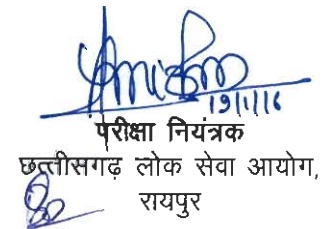 19/1/16
परीक्षा नियंत्रक
छत्तीसगढ़ लोक सेवा आयोग,
रायपुर